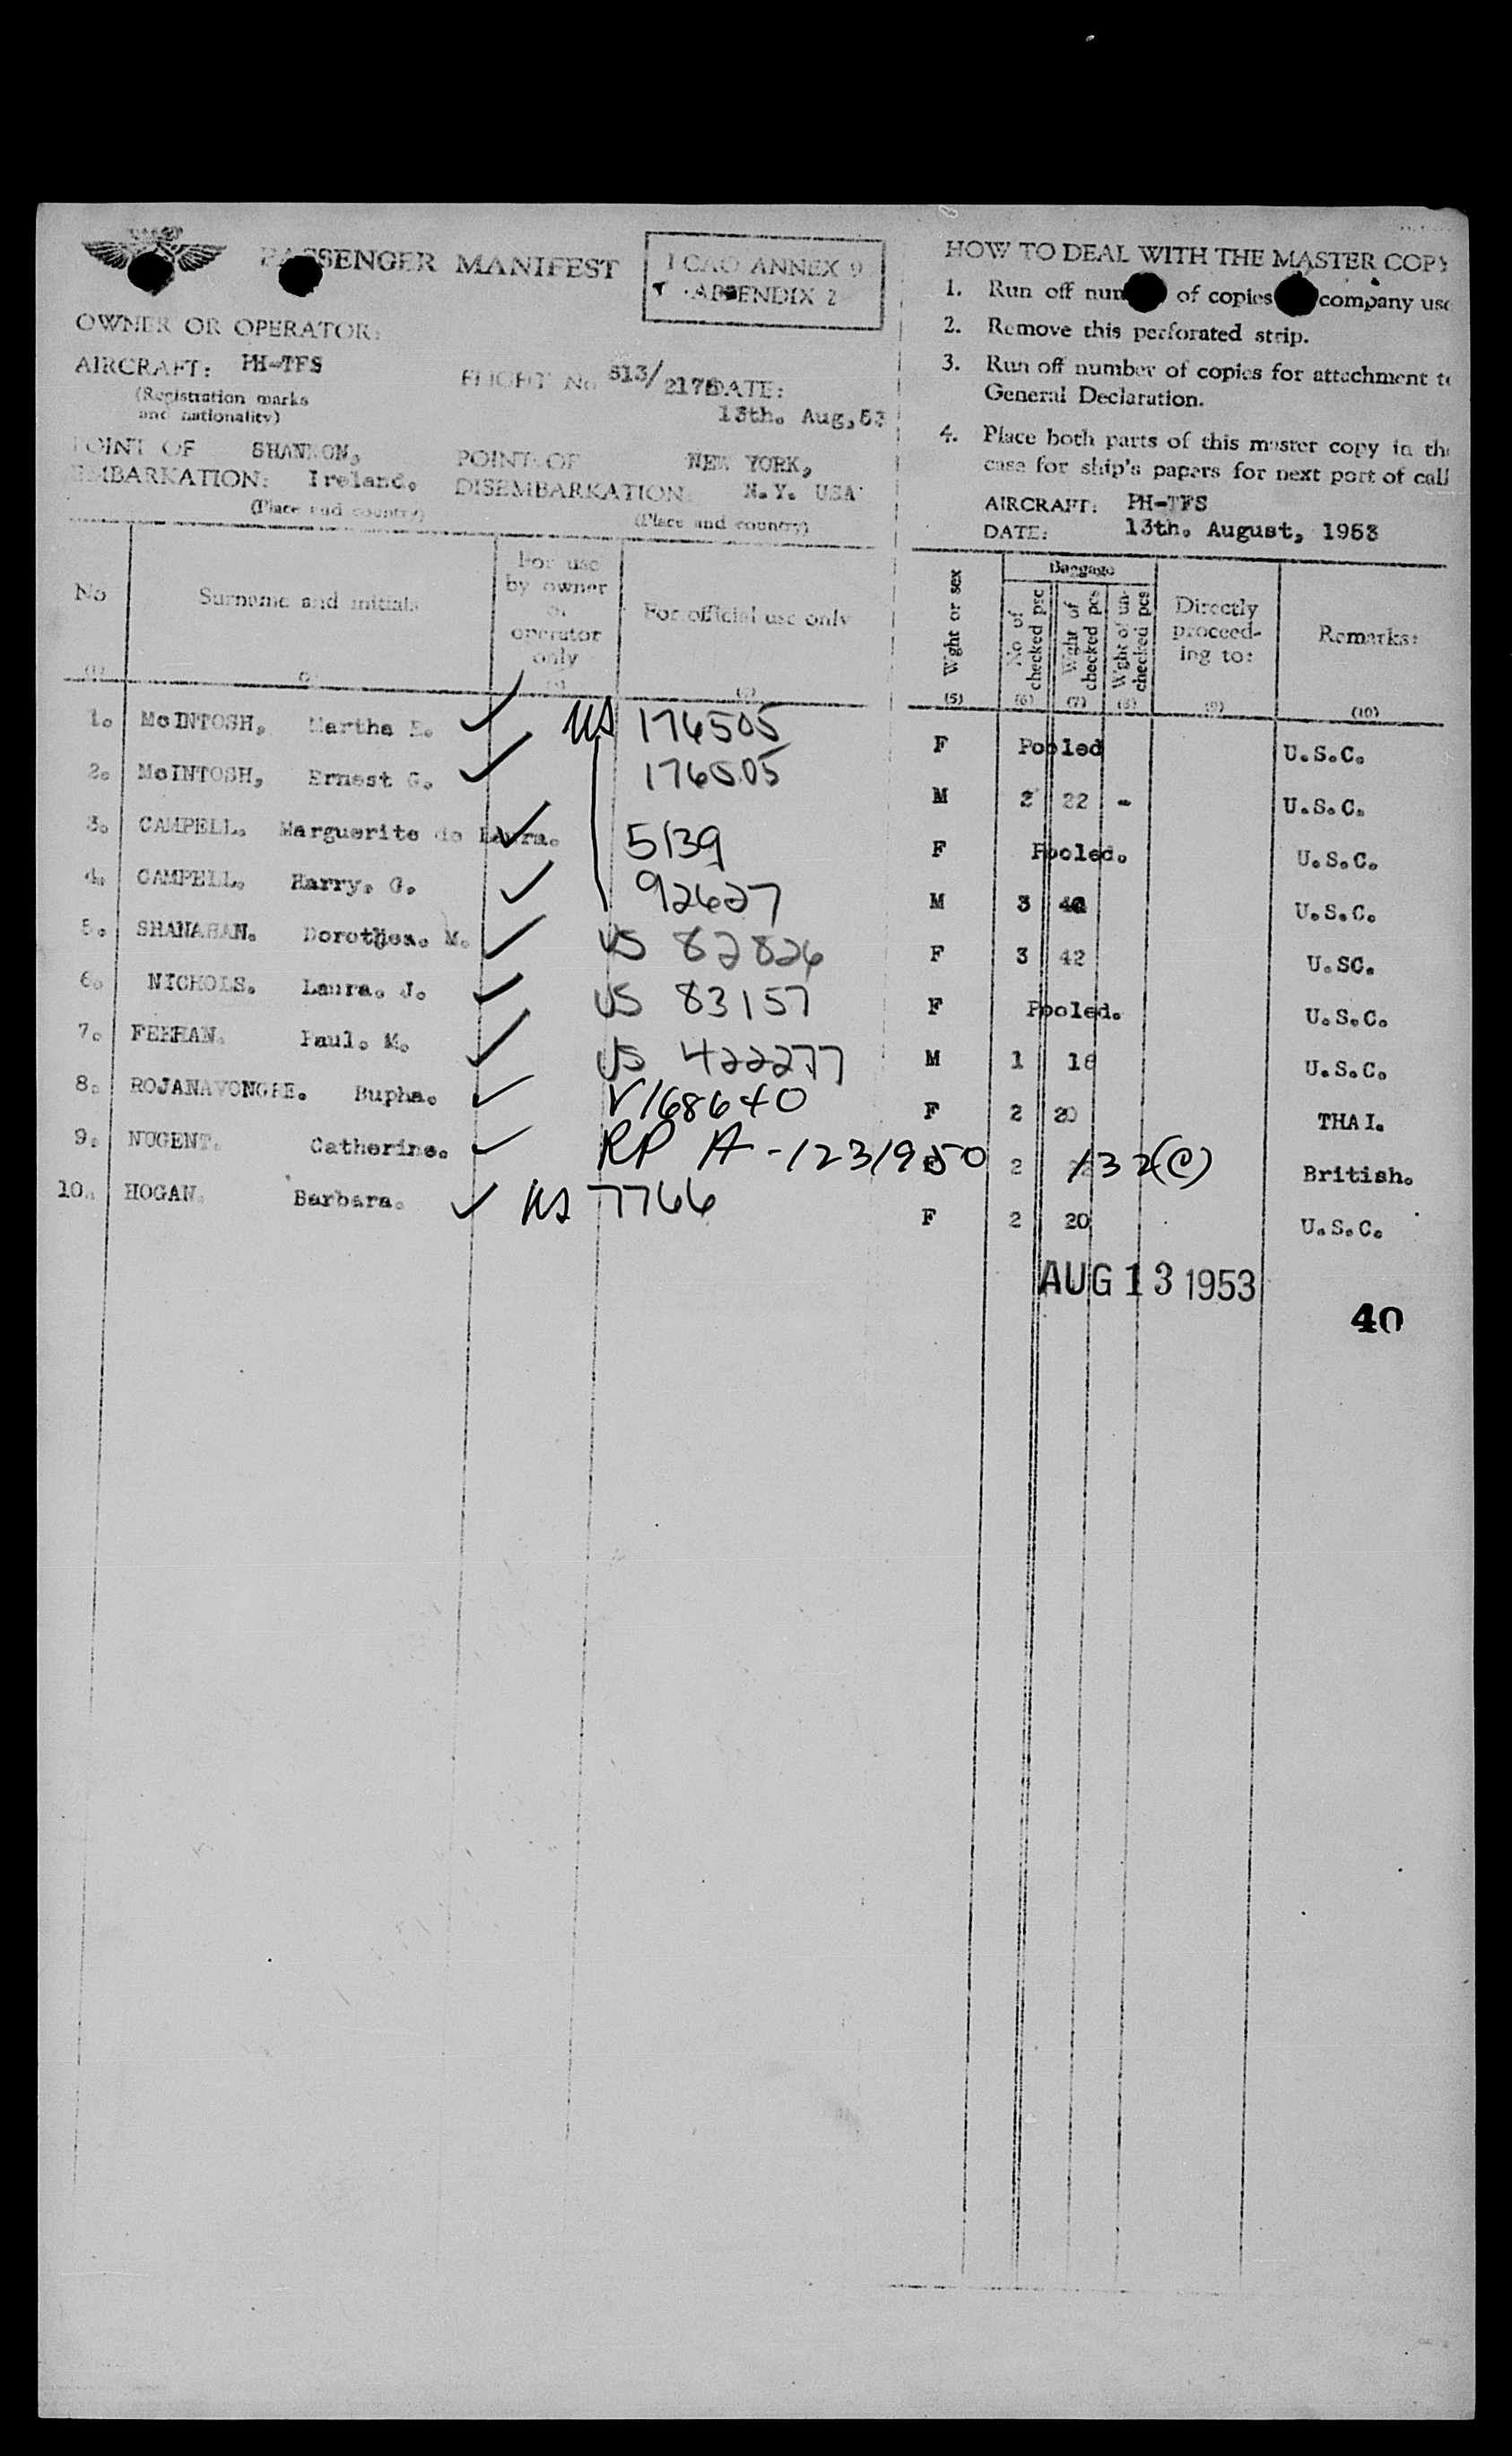 PASSENGER MANIFEST
ICAO ANNEX 9
APPENDIX 2
OWNER OR OPERATOR:
AIRCRAFT: PH-TFS
(Registration marks
and nationality)
FLIGHT No 813/
DATE:
13th. Aug, 53
POINT OF
EMBARKATION:
SHANNON,
Ireland.
(Place and country)
POINT OF
DISEMBARKATION:
NEW YORK,
N.Y. USA
(Place and country)
HOW TO DEAL WITH THE MASTER COPY
1. Run off of copies company use
2. Remove this perforated strip.
3. Run off number of copies for attachment to
General Declaration.
4. Place both parts of this master copy in the
case for ship's papers for next port of call
AIRCRAFT: PH-TFS
DATE: 13th. August, 1953
No
Surname and initials
For use
by owner
or
operator
only
For official use only
Wght or sex
Baggage
No of checked pcs
Wght of checked pcs
Wght of un- checked pcs
Directly
proceed-
ing to:
Remarks:
(5) (6) (7) (8) (9) (10)
1. McINTOSH, Martha E. ✓ US 176505 F Pooled U.S.C.
2. McINTOSH, Ernest G. ✓ 176505 M 2 22 - U.S.C.
3. CAMPELL. Marguerite de Laura. ✓ 5139 F Pooled. U.S.C.
4. CAMPELL. Harry. G. ✓ 92627 M 3 U.S.C.
5. SHANAHAN. Dorothea. M. ✓ US 82826 F 3 42 U.SC.
6. NICHOLS. Laura. J. ✓ US 83157 F Pooled. U.S.C.
7. Paul. M. ✓ US 422277 M 1 16 U.S.C.
8. Bupha. ✓ V168640 F 2 20 THAI.
9. NUGENT. Catherine. ✓ RP A-1231950 2 132(C) British.
10. HOGAN. Barbara. ✓ US 7766 F 2 20 U.S.C.
AUG 13 1953
40